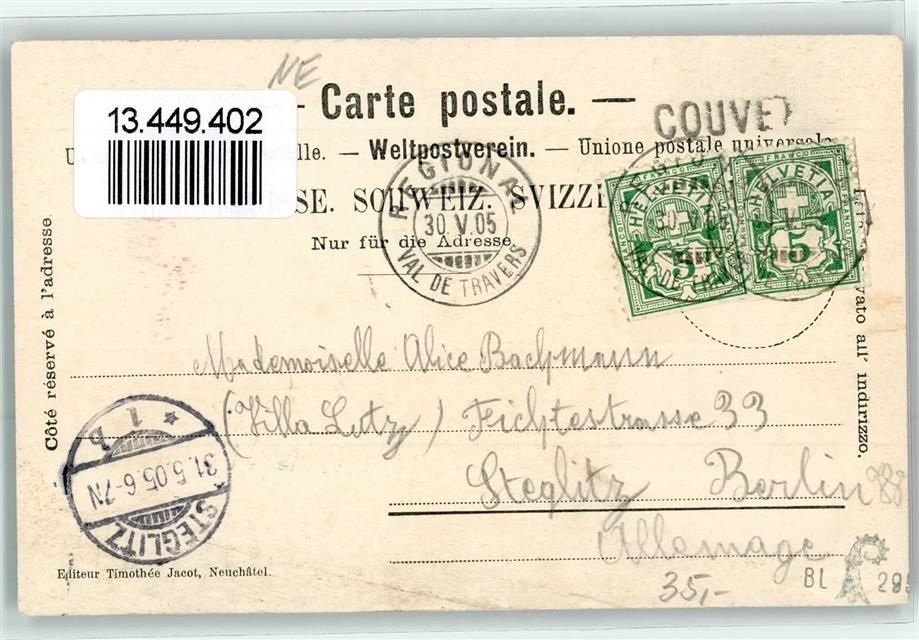 NE
— Carte postale. —
13.449.402
COUVET
elle. — Weltpostverein. — Unione postale universale
SE. SCHWEIZ. SVIZZE
Nur für die Adresse.
REGIONAL
30.V.05
VAL DE TRAVERS
FRANCO
HELVETIA
5
FRANCO
HELVETIA
5
Côté réservé à l'adresse.
vato all' indirizzo.
Mademoiselle Alice Bachmann
(Villa Lutz) Fichtestrasse 33
Steglitz Berlin
Allemagne
* 1 b
31.5.05.6-7N
STEGLITZ
Editeur Timothée Jacot, Neuchâtel.
35,-
BL